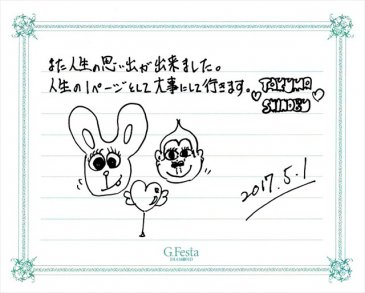 また人生の思い出が出来ました。
人生の1ページとして大事にして行きます。
TAKUMA
SHINOBU
2017.5.1
G.Festa